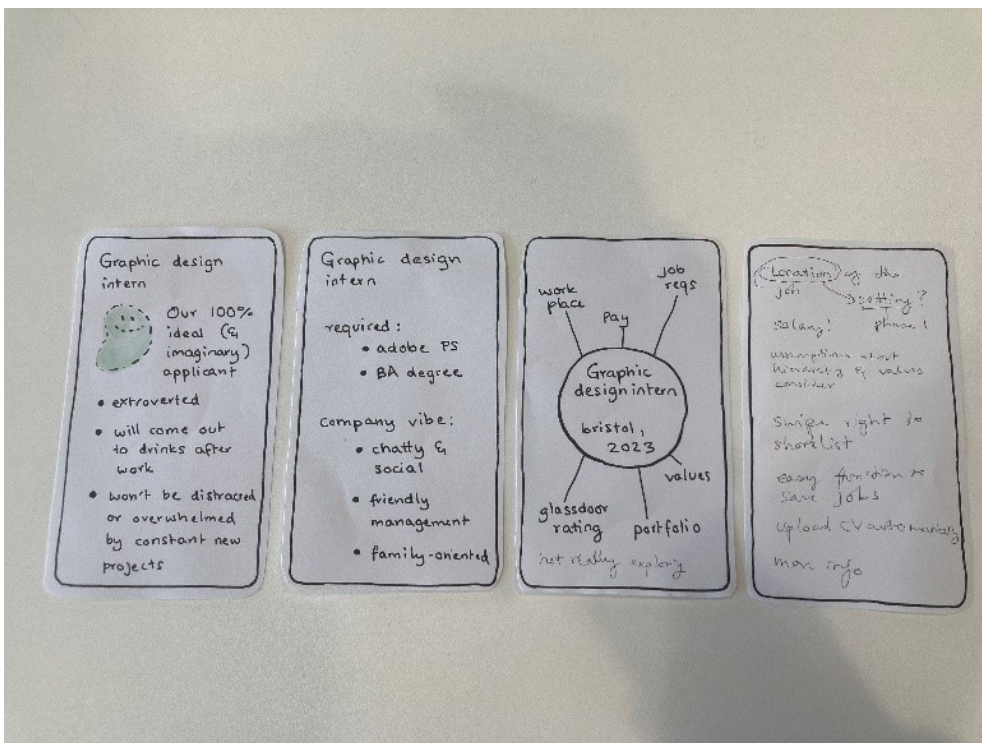 Graphic design
intern
Our 100%
ideal (&
imaginary)
applicant
• extroverted
• will come out
to drinks after
work
• won't be distracted
or overwhelmed
by constant new
projects
Graphic design
intern
required:
• adobe PS
• BA degree
company vibe:
• chatty &
social
• friendly
management
• family-oriented
work
place
pay
job
reqs
Graphic
design intern
bristol,
2023
glassdoor
rating
portfolio
values
not really exploring
Location of the
job
setting?
salary!
phase 1
assumption about
hierarchy & values
consider
Swipe right to
shortlist
easy function to
save jobs
upload CV automatically
more info